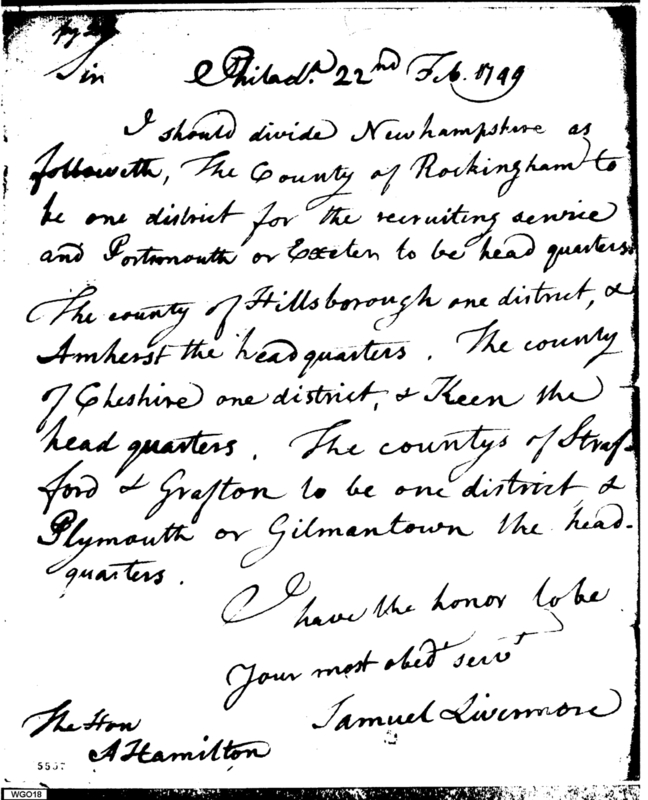 Sir Philad.ª 22nd Feb. 1799
I should divide Newhampshire as
followeth, The County of Rockingham to
be one district for the recruiting service
and Portsmouth or Exeter to be head quarters.
The county of Hillsborough one district, &
Amherst the headquarters. The county
of Cheshire one district, & Keen the
head quarters. The countys of Straf-
ford & Grafton to be one district &
Plymouth or Gilmantown the head-
quarters.
I have the honor to be
Your most obedt servt
Samuel Livermore
The Hon
A Hamilton
5537
WGO18